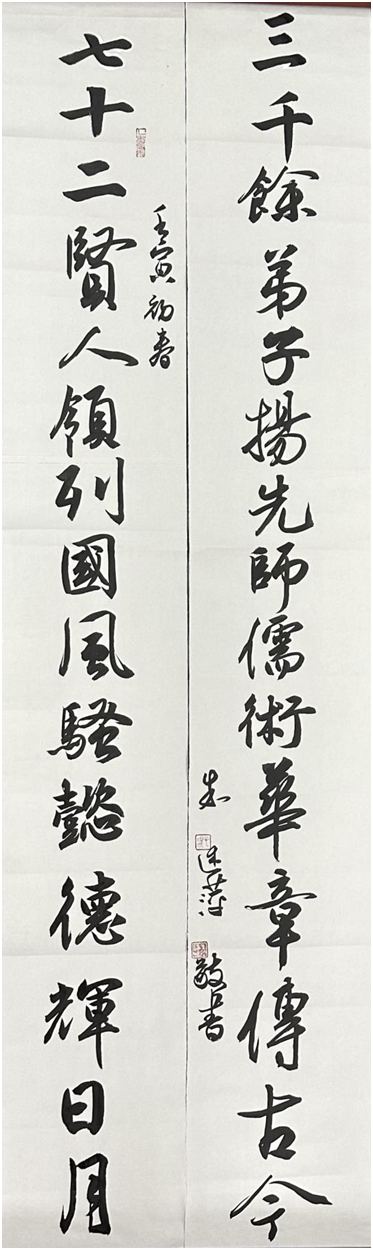 三千餘弟子揚先師儒術華章傳古今
七十二賢人領列國風騷懿德輝日月
壬寅初春
敬書